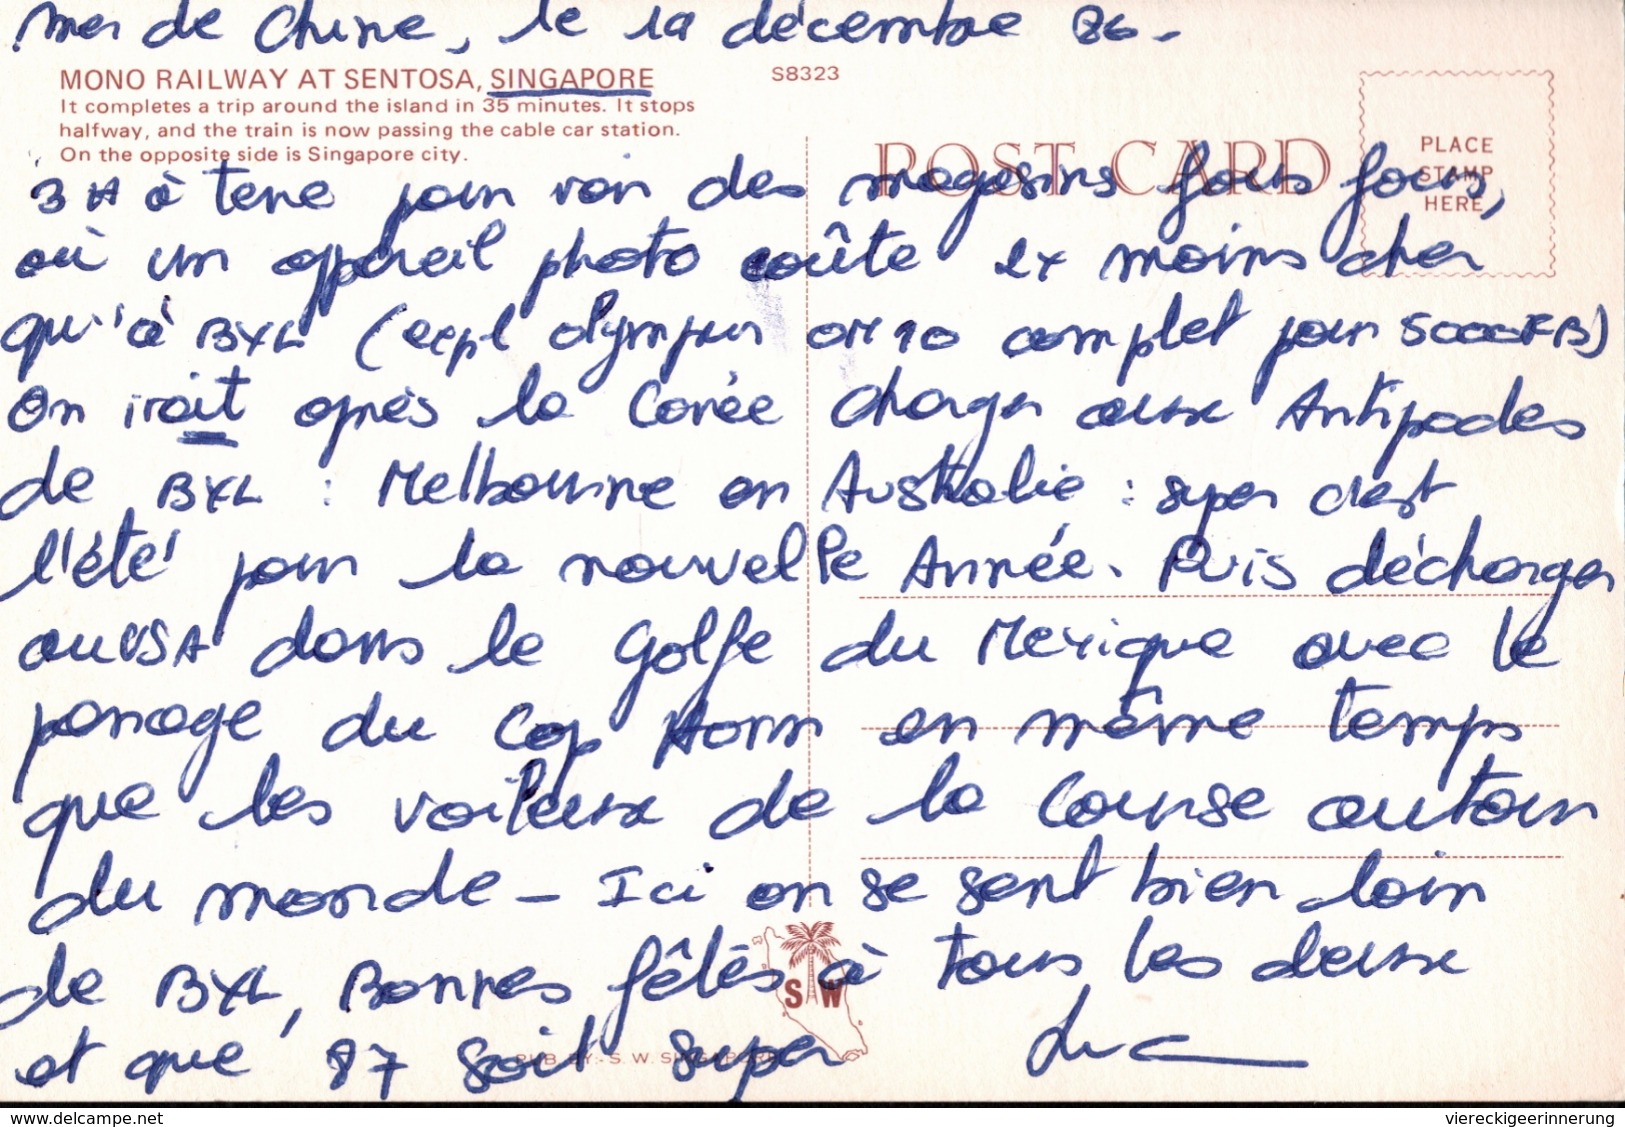 Mer de Chine, le 19 décembre 86 -
MONO RAILWAY AT SENTOSA, SINGAPORE
S8323
It completes a trip around the island in 35 minutes. It stops
halfway, and the train is now passing the cable car station.
On the opposite side is Singapore city.
POST CARD
PLACE
STAMP
HERE
3 H à terre pour voir des magasins fous fous,
où un appareil photo coûte 2x moins cher
qu'à BXL (expl Olympus OM 10 complet pour 5000FB)
On irait après la Corée charger aux Antipodes
de BXL : Melbourne en Australie : super c'est
l'été pour la nouvelle Année. Puis décharger
au USA dans le Golfe du Mexique avec le
passage du Cap Horn en même temps
que les voileux de la Course autour
du monde - Ici on se sent bien loin
de BXL, Bonnes fêtes à tous les deux
et que 87 soit super
Luc
S W
PUB. BY:- S. W. SINGAPORE
delcampe.net
viereckigeerinnerung